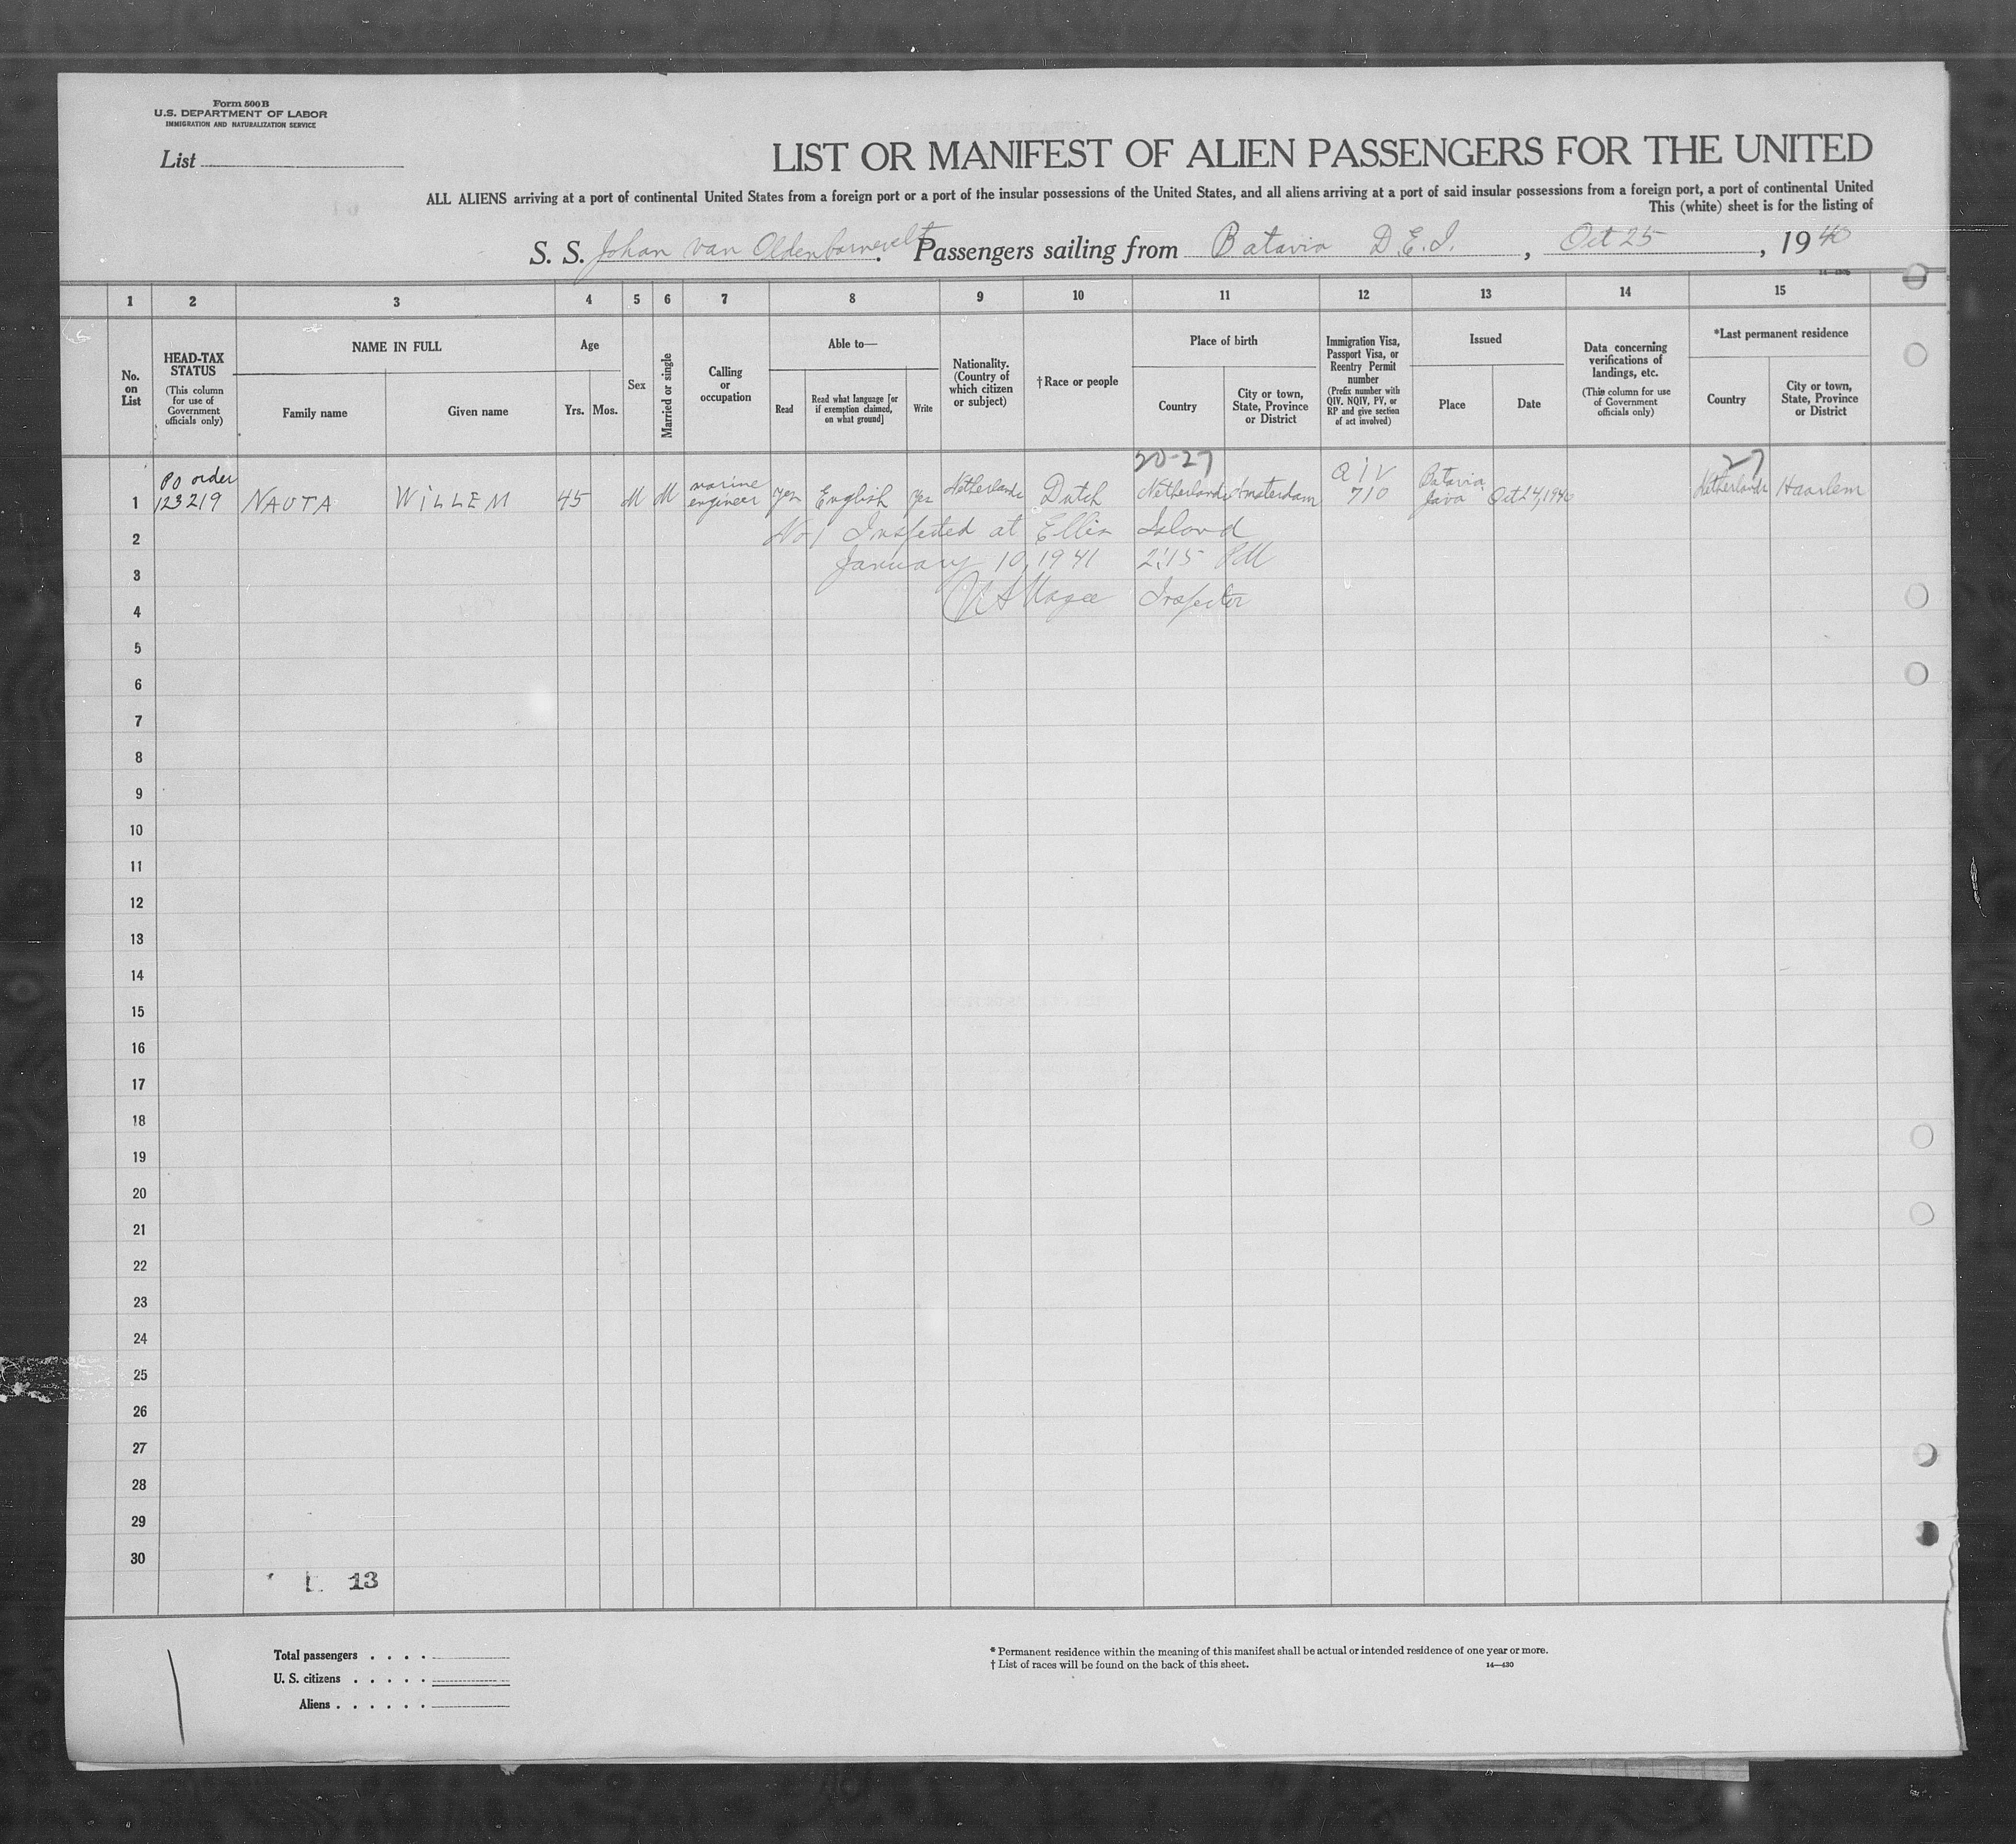 Form 500 B
U.S. DEPARTMENT OF LABOR
IMMIGRATION AND NATURALIZATION SERVICE
List
LIST OR MANIFEST OF ALIEN PASSENGERS FOR THE UNITED
ALL ALIENS arriving at a port of continental United States from a foreign port or a port of the insular possessions of the United States, and all aliens arriving at a port of said insular possessions from a foreign port, a port of continental United
This (white) sheet is for the listing of
S. S. Johan van Oldenbarnevelt. Passengers sailing from Batavia D.E.I., Oct 25, 1940
1 2 3 4 5 6 7 8 9 10 11 12 13 14 15
No. on List
HEAD-TAX STATUS
(This column for use of Government officials only)
NAME IN FULL
Family name
Given name
Age
Yrs.
Mos.
Sex
Married or single
Calling or occupation
Able to—
Read
Read what language [or if exemption claimed, on what ground]
Write
Nationality. (Country of which citizen or subject)
†Race or people
Place of birth
Country
City or town, State, Province or District
Immigration Visa, Passport Visa, or Reentry Permit number
(Prefix number with QIV, NQIV, PV, or RP and give section of act involved)
Issued
Place
Date
Data concerning verifications of landings, etc.
(This column for use of Government officials only)
*Last permanent residence
Country
City or town, State, Province or District
20-27
27
1 PO order 123219 NAUTA WILLEM 45 M M marine engineer yes English yes Netherlands Dutch Netherlands Amsterdam QIV 710 Batavia Java Oct 24, 1940 Netherlands Haarlem
2 No 1 Inspected at Ellis Island
3 January 10, 1941 2:15 PM
4 Inspector
5
6
7
8
9
10
11
12
13
14
15
16
17
18
19
20
21
22
23
24
25
26
27
28
29
30
13
Total passengers . . . .
U. S. citizens . . . . .
Aliens . . . . . .
* Permanent residence within the meaning of this manifest shall be actual or intended residence of one year or more.
† List of races will be found on the back of this sheet.
14—430